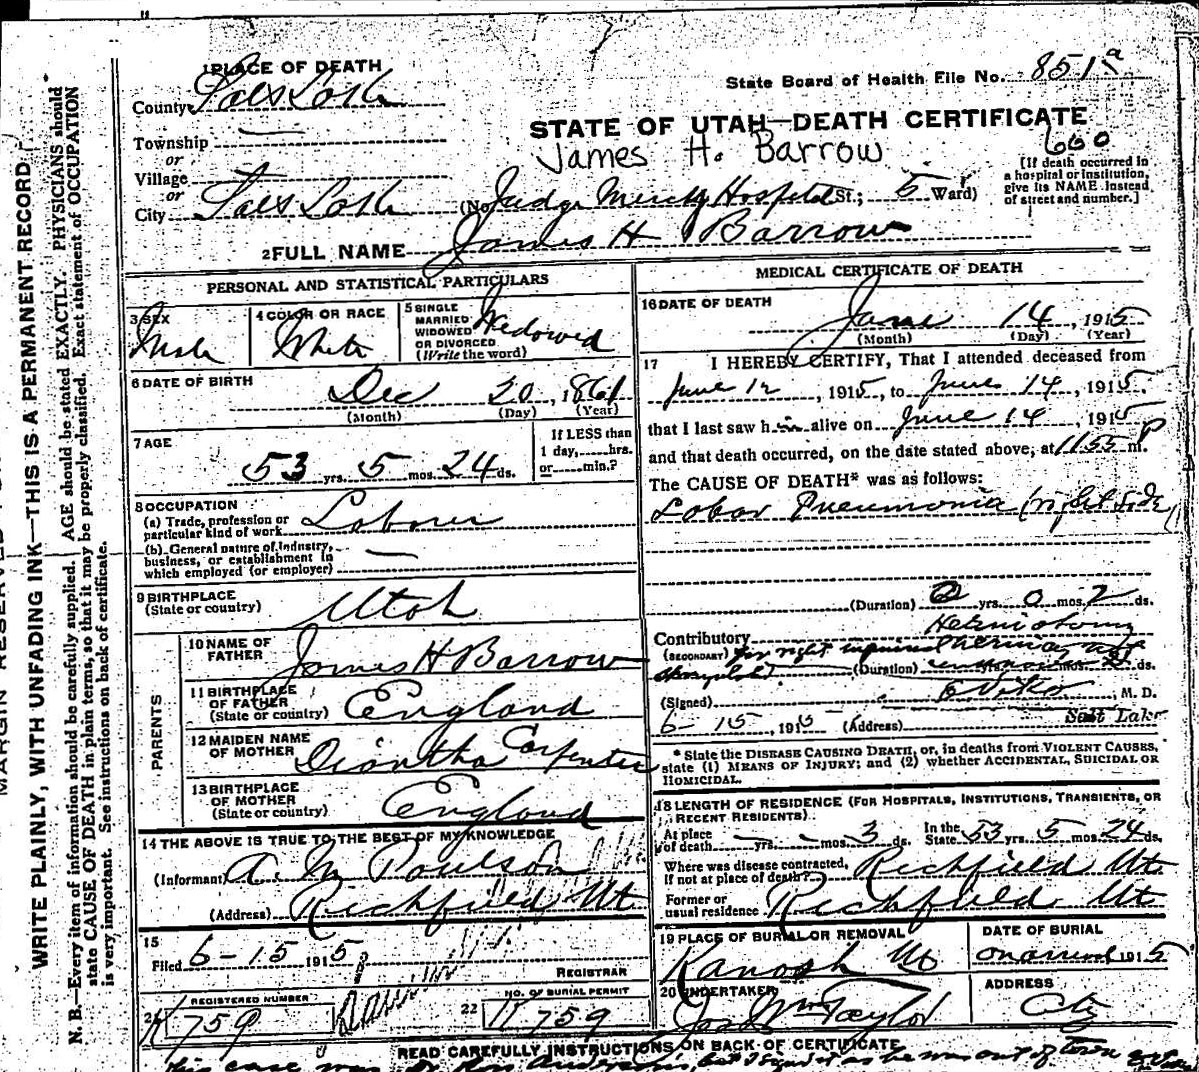 1 PLACE OF DEATH
State Board of Health File No. 851 a
County Salt Lake
STATE OF UTAH—DEATH CERTIFICATE
Township
James H. Barrow
660
or
Village
or
City Salt Lake (No. Judge Mercy Hospital St.; 5 Ward)
[If death occurred in
a hospital or institution,
give its NAME instead
of street and number.]
2 FULL NAME James H Barrow
PERSONAL AND STATISTICAL PARTICULARS
3 SEX
Male
4 COLOR OR RACE
White
5 SINGLE
MARRIED
WIDOWED
OR DIVORCED
(Write the word)
Widowed
6 DATE OF BIRTH
Dec 20, 1861
(Month) (Day) (Year)
7 AGE
53 yrs. 5 mos. 24 ds.
If LESS than
1 day, hrs.
or min.?
8 OCCUPATION
(a) Trade, profession or
particular kind of work Laborer
(b) General nature of industry,
business, or establishment in
which employed (or employer)
9 BIRTHPLACE
(State or country) Utah
PARENTS
10 NAME OF
FATHER James H Barrow
11 BIRTHPLACE
OF FATHER
(State or country) England
12 MAIDEN NAME
OF MOTHER Diantha Carpenter
13 BIRTHPLACE
OF MOTHER
(State or country) England
14 THE ABOVE IS TRUE TO THE BEST OF MY KNOWLEDGE
(Informant) A. M Poulson
(Address) Richfield Ut.
15
Filed 6-15 1915
REGISTRAR
REGISTERED NUMBER
21 K 759
NO. OF BURIAL PERMIT
22 K 759
MEDICAL CERTIFICATE OF DEATH
16 DATE OF DEATH
June 14, 1915
(Month) (Day) (Year)
17 I HEREBY CERTIFY, That I attended deceased from
June 12, 1915, to June 14, 1915
that I last saw him alive on June 14, 1915
and that death occurred, on the date stated above, at 1155 P m.
The CAUSE OF DEATH* was as follows:
Lobar Pneumonia (right side)
(Duration) 0 yrs. 0 mos. 2 ds.
Contributory Herniotomy
(SECONDARY) for right inguinal hernia, not
(Duration) ds.
(Signed) M. D.
6-15, 1915 (Address) Salt Lake
* State the DISEASE CAUSING DEATH, or, in deaths from VIOLENT CAUSES,
state (1) MEANS OF INJURY; and (2) whether ACCIDENTAL, SUICIDAL OR
HOMICIDAL.
18 LENGTH OF RESIDENCE (FOR HOSPITALS, INSTITUTIONS, TRANSIENTS, OR
RECENT RESIDENTS)
At place
of death yrs. mos. 3 ds.
In the
State 53 yrs. 5 mos. 24 ds.
Where was disease contracted,
If not at place of death? Richfield Ut.
Former or
usual residence Richfield Ut
19 PLACE OF BURIAL OR REMOVAL
Kanosh Ut
DATE OF BURIAL
on arrival 1915
20 UNDERTAKER
Jos Wm Taylor
ADDRESS
City
READ CAREFULLY INSTRUCTIONS ON BACK OF CERTIFICATE
This case was Dr. but I signed it as he was out of town
WRITE PLAINLY, WITH UNFADING INK—THIS IS A PERMANENT RECORD
N. B.—Every item of information should be carefully supplied. AGE should be stated EXACTLY. PHYSICIANS should
state CAUSE OF DEATH in plain terms, so that it may be properly classified. Exact statement of OCCUPATION
is very important. See instructions on back of certificate.